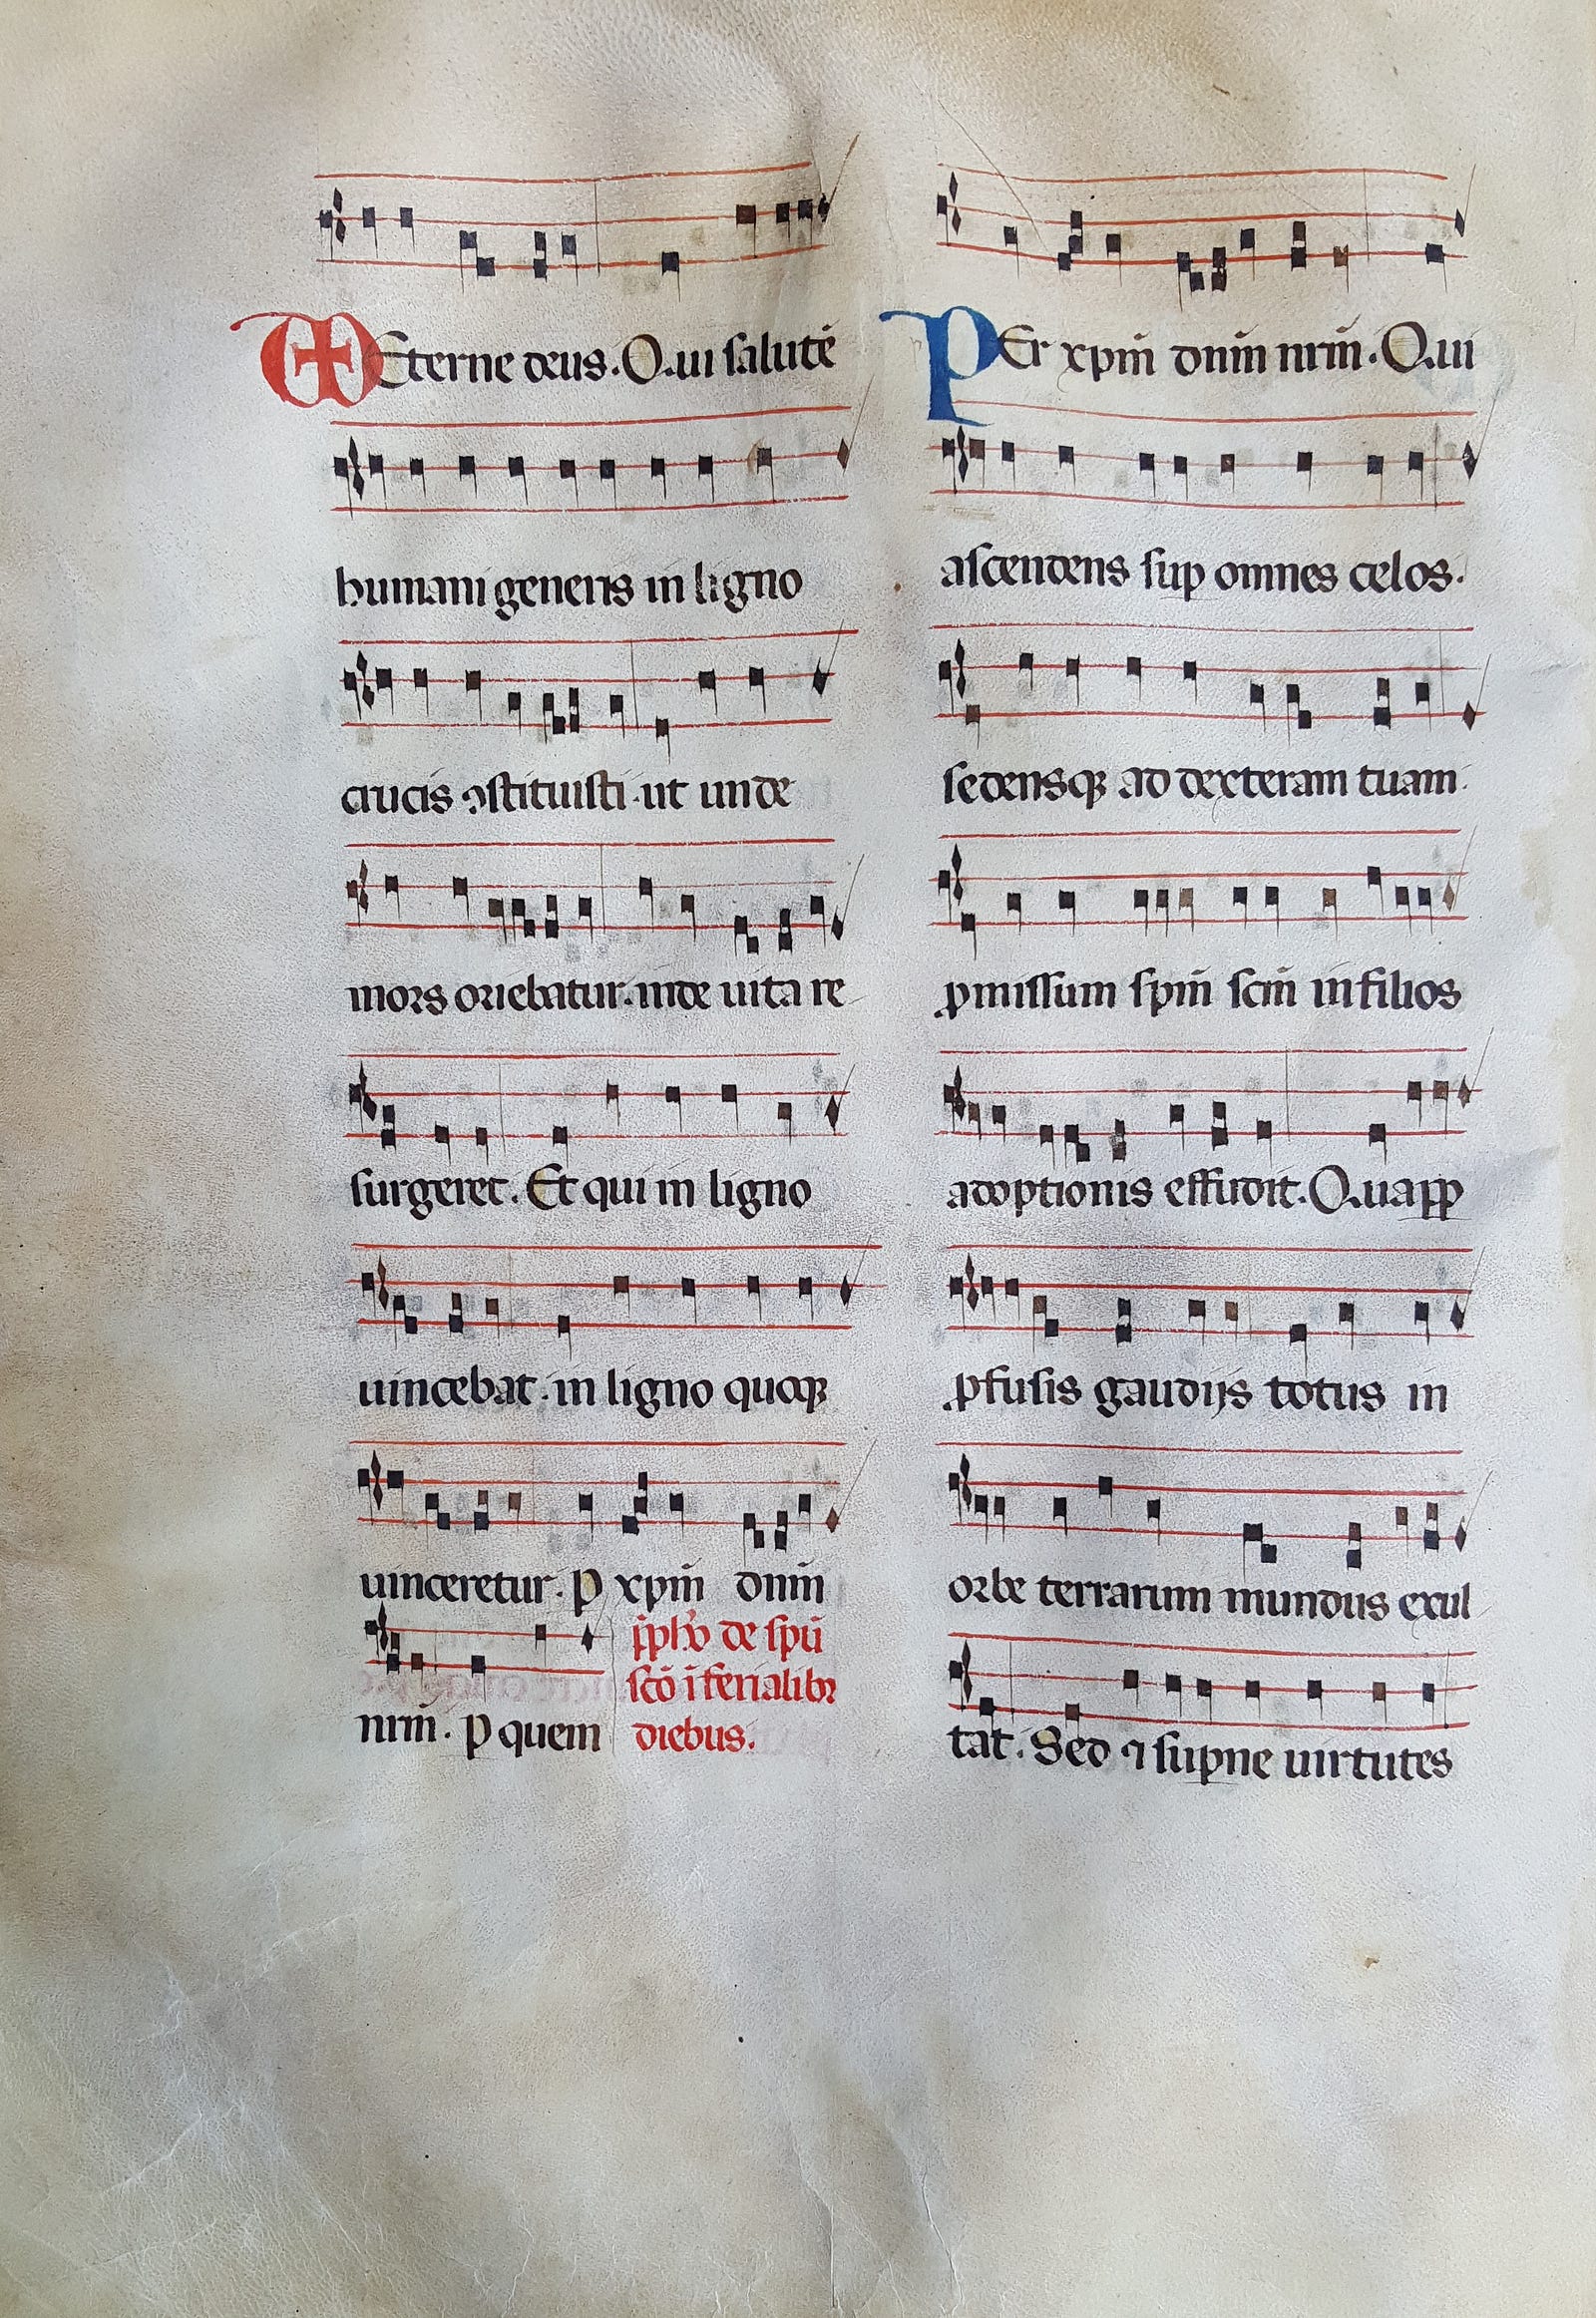 Eterne deus. Qui salutē
humani generis in ligno
crucis ꝯstituisti. ut unde
mors oriebatur. inde uita re
surgeret. Et qui in ligno
uincebat. in ligno quoqꝫ
uinceretur. ꝑ xpm̄ dnm̄
nrm̄. ꝑ quem
de spū
scō ī ferialibꝫ
diebus.
PEr xpm̄ dnm̄ nrm̄. Qui
ascendens suꝑ omnes celos.
sedensqꝫ ad dexteram tuam.
ꝓmissum spm̄ scm̄ in filios
adoptionis effudit. Quaꝓꝑ
ꝓfusis gaudijs totus in
orbe terrarum mundus exul
tat. Sed ⁊ suꝑne uirtutes